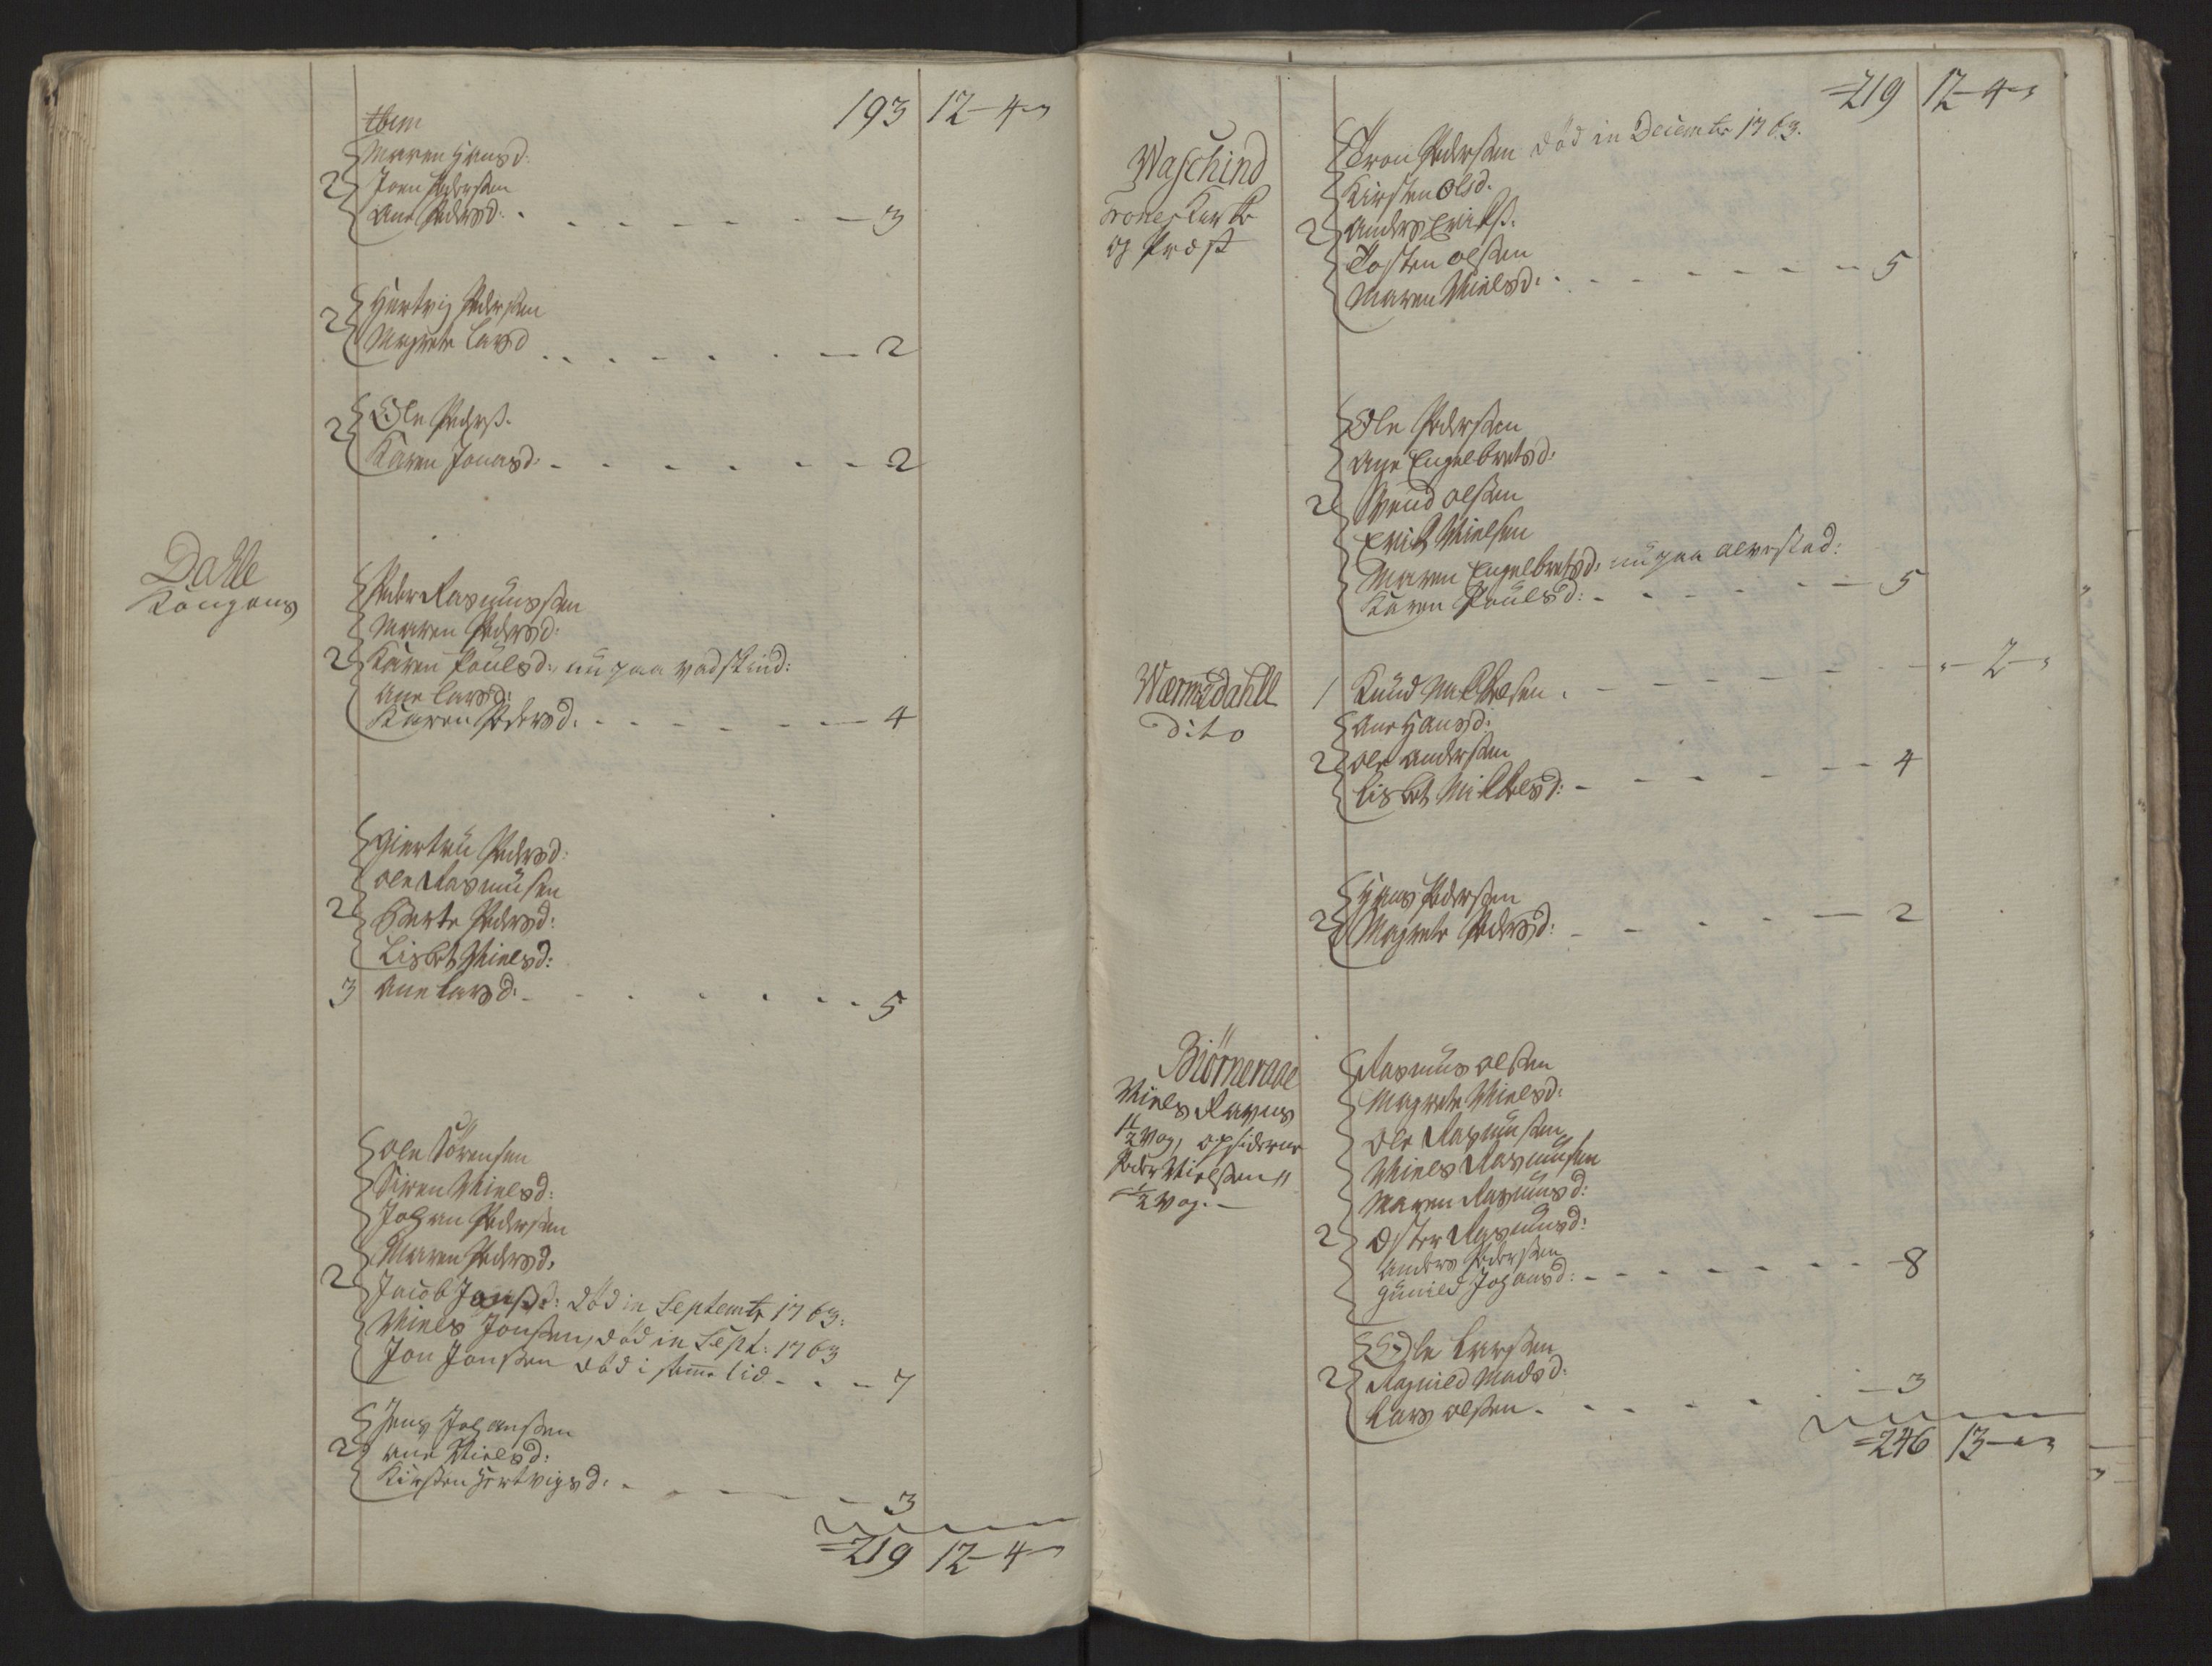 193 12-4-"
Maren Hansd:
2 Joen Pedersen
Ane Pedersd: - - - - - 3
2 Hertvig Pedersen
Magrete Larsd - - - - - 2
2 Ole Peders.
Karen Jonasd: - - - - - 2
Dahle
Kongens
Peder Rasmussen
Maren Pedersd:
2 Karen Poulsd: nu paa Vadskind:
Ane Larsd:
Karen Pedersd. - - - - - 4
Giertru Pedersd:
Ole Rasmusen
2 Berte Pedersd:
Lisbet Nielsd:
3 Ane Larsd: - - - - - 5
Ole Sörensen
Siren Nielsd:
Johan Pedersen
Maren Pedersd,
2 Jacob Jonss: död in Septembr 1763:
Niels Jonsen, död in Sept: 1763
Jon Jonsen död i samme tid - - - 7
Jens Johansen
2 Ane Nielsd:
Kirsten Hertvigsd: - - - - - 3
=219 12-4-
=219 12-4-"
Waschind
Trones Kirke
og Præst
Tron Pedersen död in Decembr 1763.
Kirsten Olsd.
2 Anders Eriks:
Tosten Olsen
Maren Nielsd: - - - - - 5
Ole Pedersen
Ane Engelbretsd:
2 Svend Olsen
Erich Nielsen
Maren Engelbretsd: nu paa Alvestad:
Karen Poulsd: - - - - - 5
Wærmedahll
dito
1 Knud Mikkelsen . - - - - - "-2-"
Ane Hansd:
2 Ole Andersen
Lisbet Mikkelsd: - - - - - 4
Hans Pedersen
2 Magrete Pedersd: - - - - - 2
Biörneraae
Niels Ravns
1 1/2 Vog, opsiderne
Peder Nielsen
1/2 Vog. -
Rasmus Olsen
Magrete Nielsd:
Ole Rasmusen
Niels Rasmusen
Maren Rasmusd:
2 Oster Rasmusd:
Anders Pedersen
Gunild Johansd: - - - - - 8
Ole Larsen
2 Ragnild Madsd:
Lars Olsen - - - - - 3
=246 13-"-"